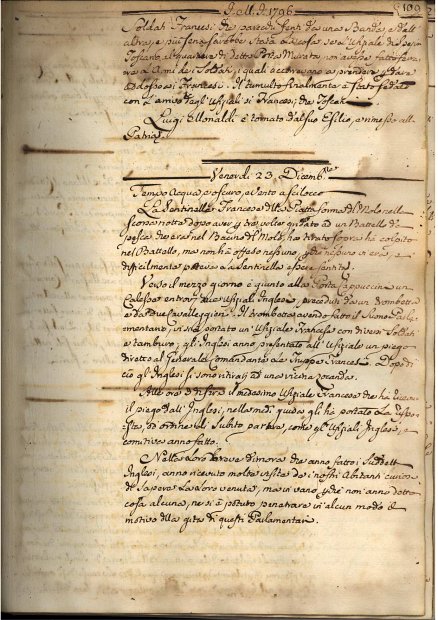 1796
109
Soldati Francesi che parecchi feriti da una Banda, e dall'
altra, e più sena sarebbe stata la cosa se l'Ufiziale di
Toscano di guardia di detta Porta Murata non avesse fatto
Armi dei Soldati, i quali accorrevano a prendere
addosso ai Francesi. Il tumulto finalmente è stato sedato
con l'arrivo degli Ufiziali si Francesi, che Toscani
Luigi è tornato dal suo Esilio, e rimesso alla
Patria
Venerdì 23. Dicembre
Tempo Acqua e oscuro, e vento a scilocco
La Sentinella Francese della Piatta forma del Molo nella
scorsa notte dopo aver tre volte gridato ad un Battello da
pesca che era nel Bacino del Molo, ha tirato sopra ha colpito
nel Battello, ma non ha offeso nessuno, nè nessuno vi era, e
difficilmente poteva la Sentinella essere sentita.
Verso il mezzo giorno è giunto alla Porta Cappuccina un
Calesse entrovi due Ufiziali Inglesi, preceduti da un Trombetta
e da due Cavalleggieri. Il Trombetta avendo fatto il Suono Parla-
mentario, si è portato un Ufiziale Francese con diversi Soldati
e tamburo; gli Inglesi anno presentato all'Ufiziale un piego
diretto al Generale comandante le Truppe Francesi. Dopo di
ciò gl'Inglesi si sono ritirati ad una vicina locanda.
Alle ore il medesimo Ufiziale Francese che ha ricevuto
il piego dall'Inglesi, nella medesima guisa gli ha portato la Rispo-
sta, ed ordine di subito partire, come gli Ufiziali Inglesi, e
comitiva anno fatto.
Nella loro breve dimora che anno fatto i Suddetti
Inglesi, anno ricevuto molte visite da i nostri Abitanti curiosi
di Sapere la loro venuta, ma in vano, perchè non anno detto
cosa alcuna, ne si è potuto penetrare in alcun modo il
motivo della gita di questi Parlamentari.